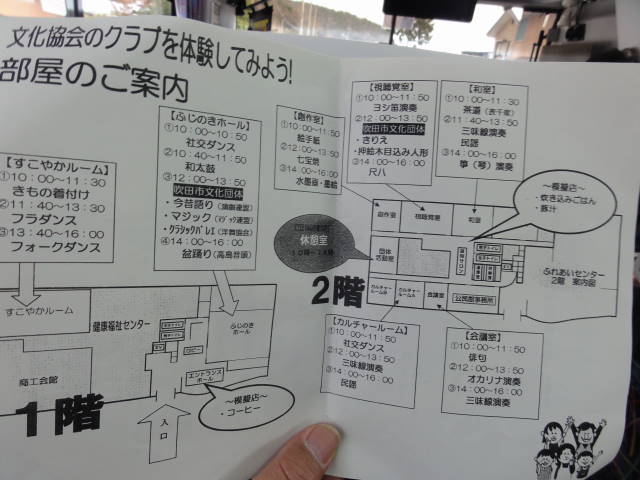 文化協会のクラブを体験してみよう!
部屋のご案内
【すこやかルーム】
①10:00~11:30
きもの着付け
②11:40~13:30
フラダンス
③13:40~16:00
フォークダンス
【ふじのきホール】
①10:00~10:50
社交ダンス
②10:40~11:50
和太鼓
③12:00~13:50
吹田市文化団体
・今昔語り
・マジック
・クラシックバレエ
④14:00~16:00
盆踊り(高島音頭)
【創作室】
①10:00~11:50
絵手紙
②12:00~13:50
七宝焼
③14:00~16:00
水墨画・墨絵
【視聴覚室】
①10:00~11:50
ヨシ笛演奏
②12:00~13:50
吹田市文化団体
・きりえ
・押絵木目込み人形
③14:00~16:00
尺八
【和室】
①10:00~11:30
茶道(表千家)
②11:40~13:50
三味線演奏
民謡
③14:00~16:00
箏(琴)演奏
~模擬店~
・炊き込みごはん
・豚汁
休憩室
2階
創作室
視聴覚室
和室
団体
活動室
カルチャールームB
カルチャールームA
会議室
公民館事務所
ふれあいセンター
2階 案内図
【カルチャールーム】
①10:00~11:50
社交ダンス
②12:00~13:50
三味線演奏
③14:00~16:00
民謡
【会議室】
①10:00~11:50
俳句
②12:00~13:50
オカリナ演奏
③14:00~16:00
三味線演奏
すこやかルーム
健康福祉センター
ふじのき
ホール
商工会館
エントランス
ホール
1階
入口
~模擬店~
・コーヒー